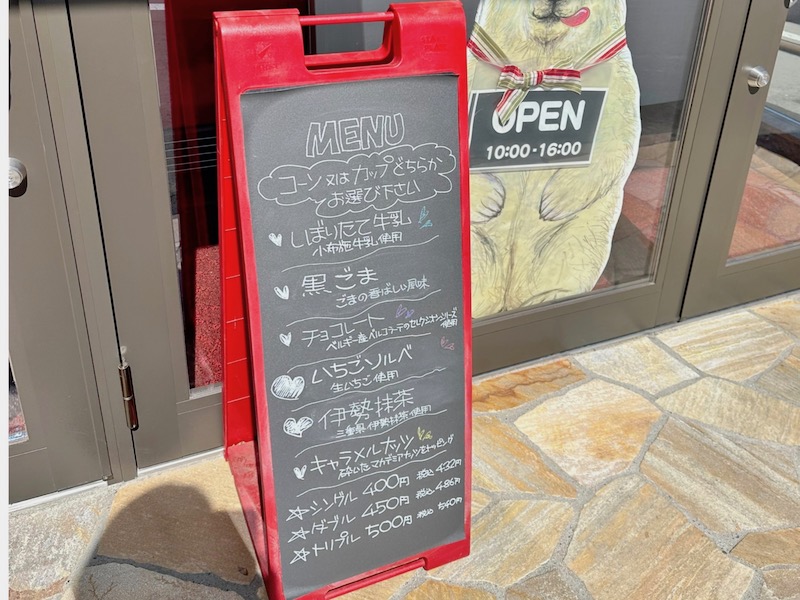 MENU
コーン又はカップどちらか
お選び下さい
しぼりたて牛乳
小布施牛乳使用
黒ごま
ごまの香ばしい風味
チョコレート
ベルギー産ベルコラーデのセレクシオンシリーズ
使用
いちごソルベ
生いちご使用
伊勢抹茶
三重県伊勢抹茶使用
キャラメルナッツ
砕いたマカデミアナッツをトッピング
☆シングル 400円 税込 432円
☆ダブル 450円 税込 486円
☆トリプル 500円 税込 540円
OPEN
10:00-16:00